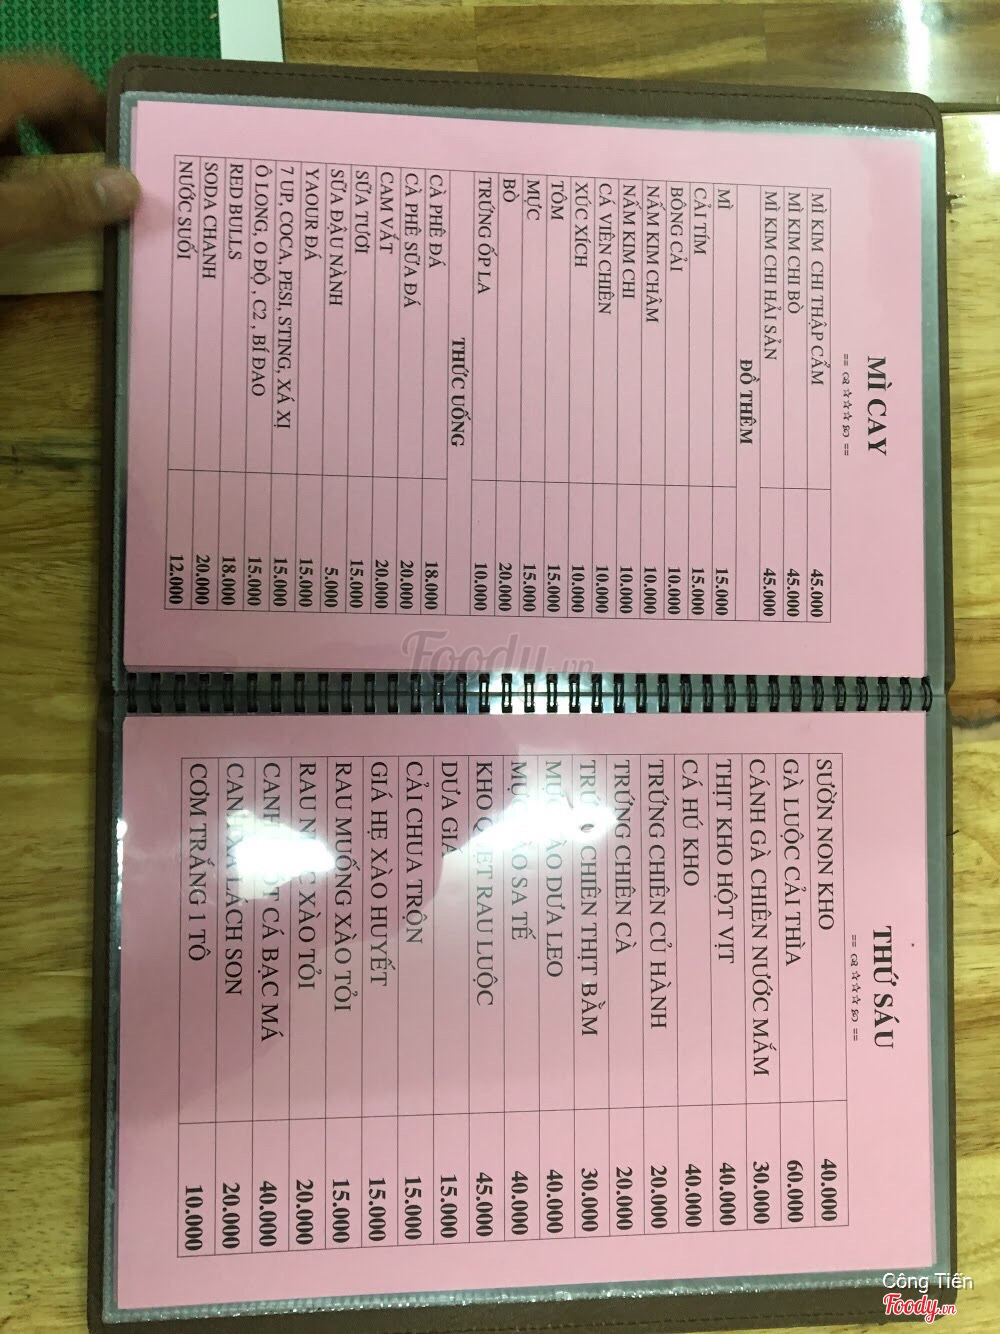 MÌ CAY
== ०३ ☆☆☆ ৪০ ==
MÌ KIM CHI THẬP CẨM 45.000
MÌ KIM CHI BÒ 45.000
MÌ KIM CHI HẢI SẢN 45.000
ĐỒ THÊM
MÌ 15.000
CẢI TÍM 15.000
BÔNG CẢI 10.000
NẤM KIM CHÂM 10.000
NẤM KIM CHI 10.000
CÁ VIÊN CHIÊN 10.000
XÚC XÍCH 10.000
TÔM 15.000
MỰC 15.000
BÒ 20.000
TRỨNG ỐP LA 10.000
THỨC UỐNG
CÀ PHÊ ĐÁ 18.000
CÀ PHÊ SỮA ĐÁ 20.000
CAM VẮT 20.000
SỮA TƯƠI 15.000
SỮA ĐẬU NÀNH 5.000
YAOUR ĐÁ 15.000
7 UP, COCA, PESI, STING, XÁ XỊ 15.000
Ô LONG, O ĐỘ , C2 , BÍ ĐAO 15.000
RED BULLS 18.000
SODA CHANH 20.000
NƯỚC SUỐI 12.000
THỨ SÁU
== ०३ ☆☆☆ ৪০ ==
SƯỜN NON KHO 40.000
GÀ LUỘC CẢI THÌA 60.000
CÁNH GÀ CHIÊN NƯỚC MẮM 30.000
THỊT KHO HỘT VỊT 40.000
CÁ HÚ KHO 40.000
TRỨNG CHIÊN CỦ HÀNH 20.000
TRỨNG CHIÊN CÀ 20.000
CHIÊN THỊT BẰM 30.000
DƯA LEO 40.000
SA TẾ 40.000
KHO RAU LUỘC 45.000
DƯA GIÁ 15.000
CẢI CHUA TRỘN 15.000
GIÁ HẸ XÀO HUYẾT 15.000
RAU MUỐNG XÀO TỎI 15.000
RAU XÀO TỎI 20.000
CANH CÁ BẠC MÁ 40.000
CANH XÀ LÁCH SON 20.000
CƠM TRẮNG 1 TÔ 10.000
Foody.vn
Công Tiến
Foody.vn